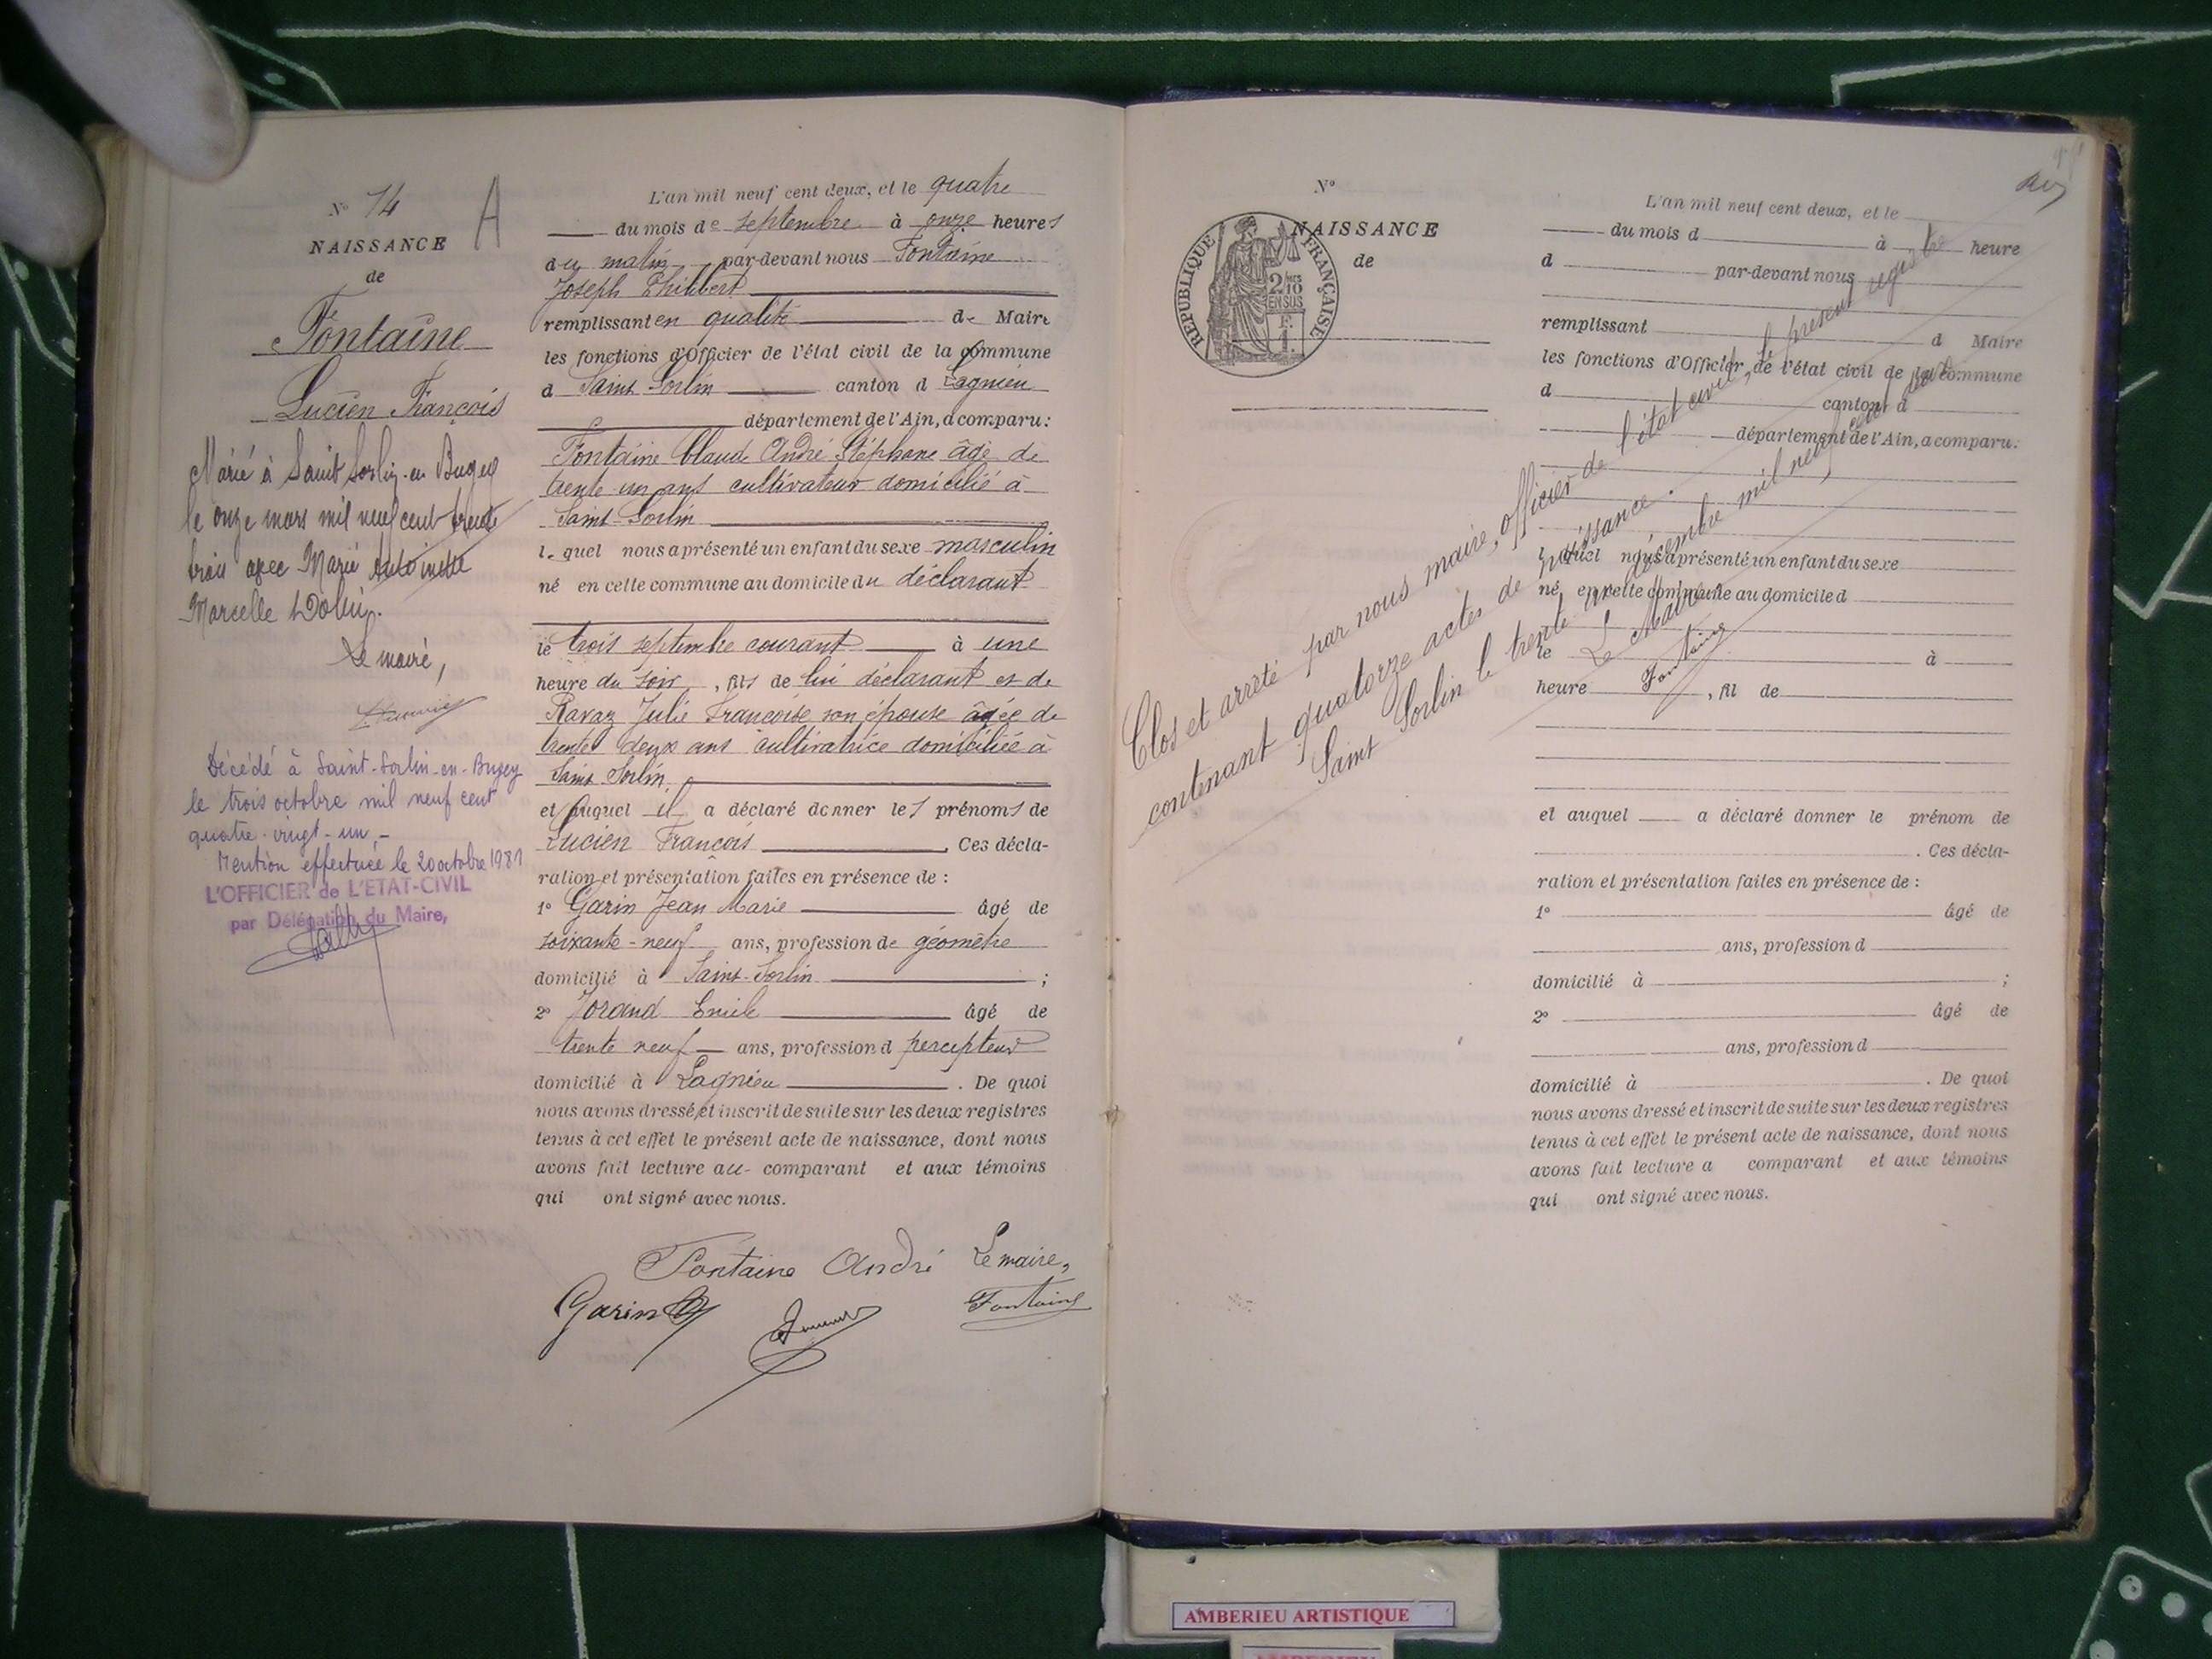 N° 14
A
NAISSANCE
de
Fontaine
Lucien François
Marié à Saint Sorlin-en Bugey
le onze mars mil neuf cent trente
trois avec Marie Antoinette
Marcelle
Le maire,
Décédé à Saint-Sorlin-en-Bugey
le trois octobre mil neuf cent
quatre-vingt-un-
Mention effectuée le 20 octobre 1981
L'OFFICIER de L'ETAT-CIVIL
par Délégation du Maire,
L'an mil neuf cent deux, et le quatre
du mois de septembre à onze heures
du matin, par-devant nous Fontaine
Joseph Philibert
remplissant en qualité de Maire
les fonctions d'Officier de l'état civil de la commune
d Saint-Sorlin canton d Lagnieu
département de l'Ain, a comparu:
Fontaine Claude André Stéphane âgé de
trente un ans cultivateur domicilié à
Saint-Sorlin
lequel nous a présenté un enfant du sexe masculin
né en cette commune au domicile du déclarant
le trois septembre courant à une
heure du soir, fils de lui déclarant et de
Ravaz Julie Françoise son épouse âgée de
trente deux ans cultivatrice domiciliée à
Saint Sorlin,
et auquel il a déclaré donner les prénoms de
Lucien François. Ces décla-
ration et présentation faites en présence de :
1° Garin Jean Marie âgé de
soixante-neuf ans, profession de géomètre
domicilié à Saint-Sorlin ;
2° Jorand Emile âgé de
trente neuf ans, profession d percepteur
domicilié à Lagnieu. De quoi
nous avons dressé et inscrit de suite sur les deux registres
tenus à cet effet le présent acte de naissance, dont nous
avons fait lecture au comparant et aux témoins
qui ont signé avec nous.
Fontaine André Le maire,
Garin Fontaine
N°
NAISSANCE
de
REPUBLIQUE FRANÇAISE
2/10
EN SUS
L'an mil neuf cent deux, et le
du mois d à heure
d par-devant nous
remplissant d Maire
les fonctions d'Officier de l'état civil de la commune
d canton d
département de l'Ain, a comparu:
lequel nous a présenté un enfant du sexe
né en cette commune au domicile d
le à
heure , fil de
et auquel a déclaré donner le prénom de
. Ces décla-
ration et présentation faites en présence de :
1° âgé de
ans, profession d
domicilié à ;
2° âgé de
ans, profession d
domicilié à . De quoi
nous avons dressé et inscrit de suite sur les deux registres
tenus à cet effet le présent acte de naissance, dont nous
avons fait lecture a comparant et aux témoins
qui ont signé avec nous.
Clos et arrêté par nous maire, officier de l'état civil, le présent registre
contenant quatorze actes de naissance.
Saint Sorlin le trente un décembre mil neuf cent deux
Le Maire
Fontaine
AMBERIEU ARTISTIQUE